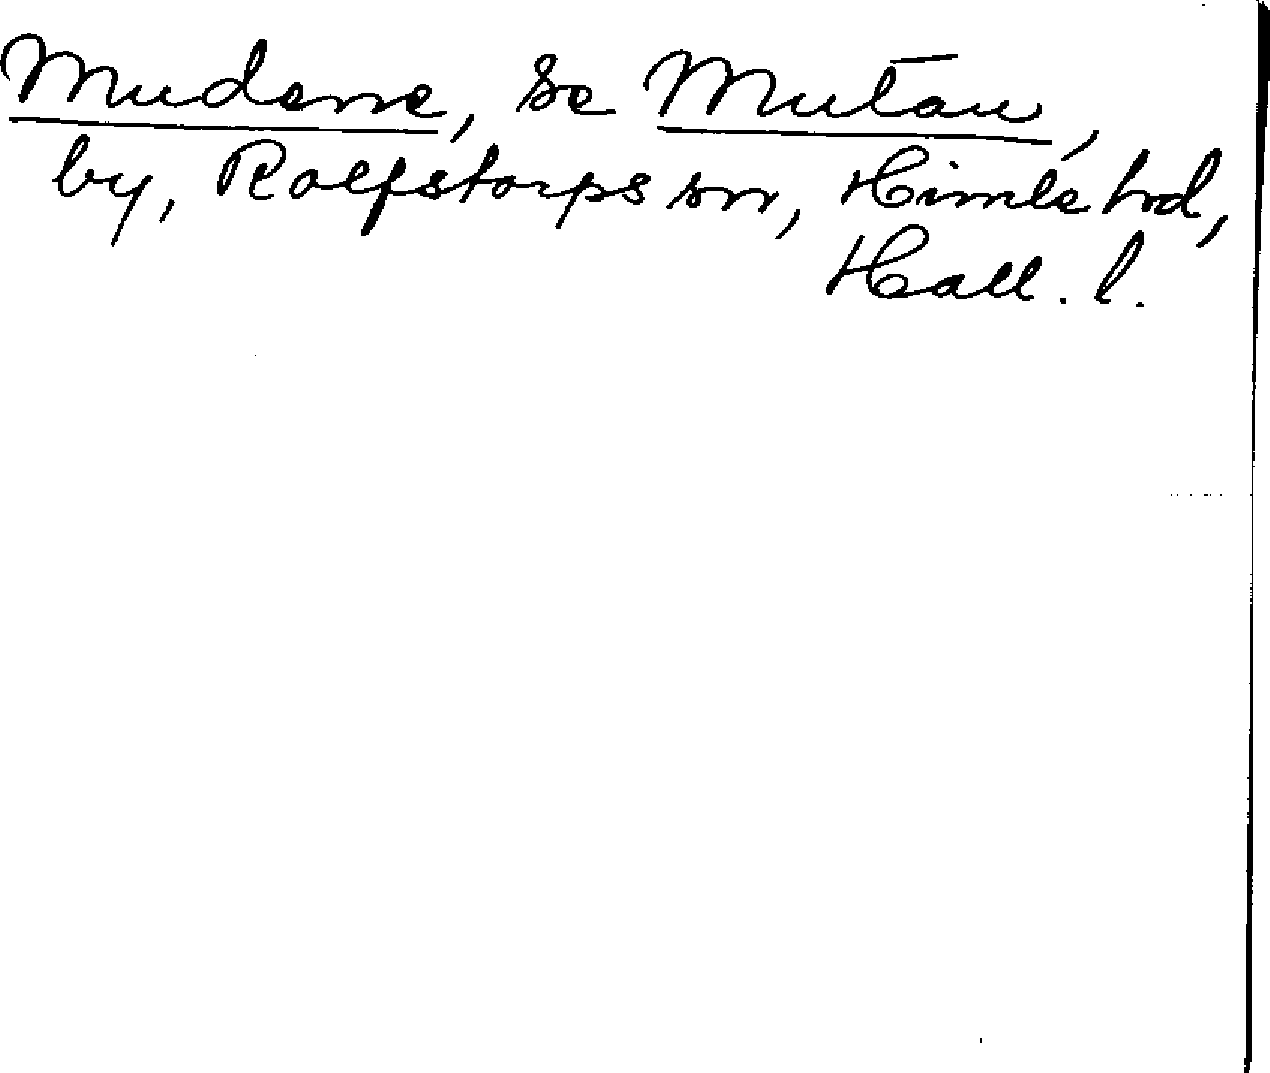 Mudene, se Mutan,
by, Rolfstorps sn, Himle hd,
Hall. l.